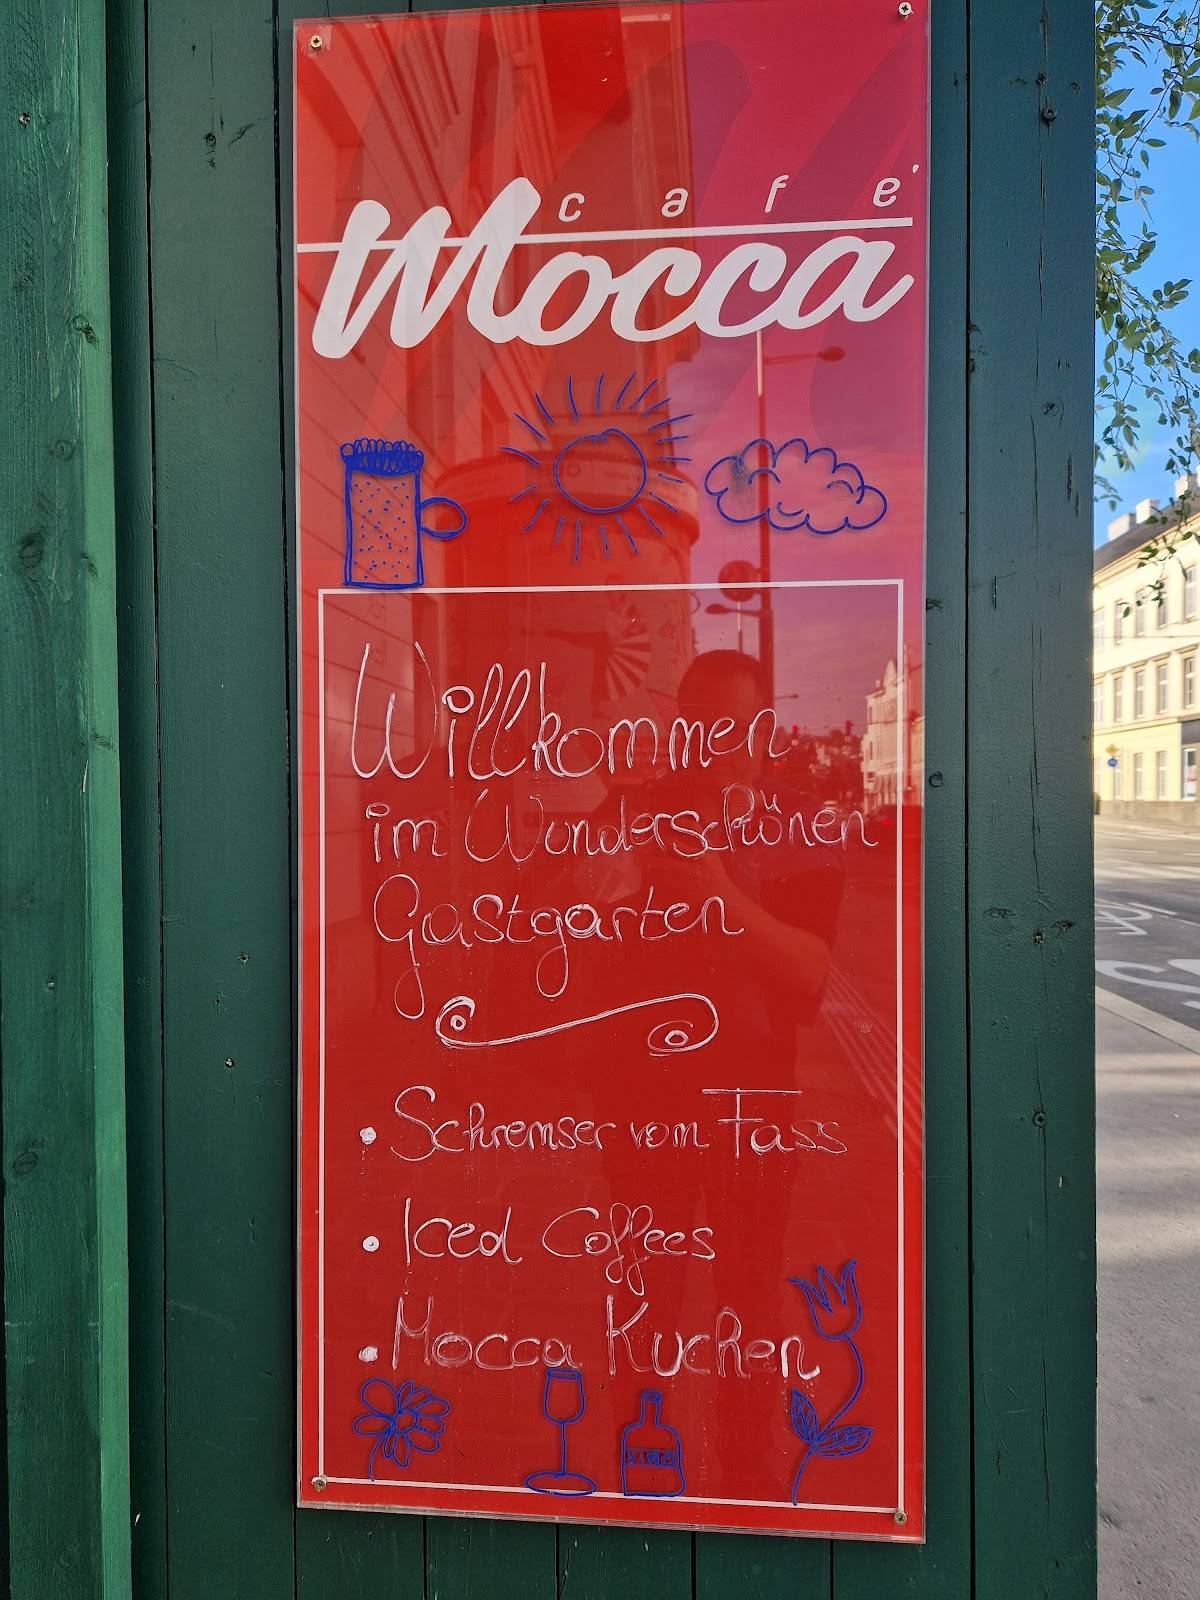 café
Mocca
Willkommen
im Wunderschönen
Gastgarten
• Schremser vom Fass
• Iced Coffees
• Mocca Kuchen
VINO